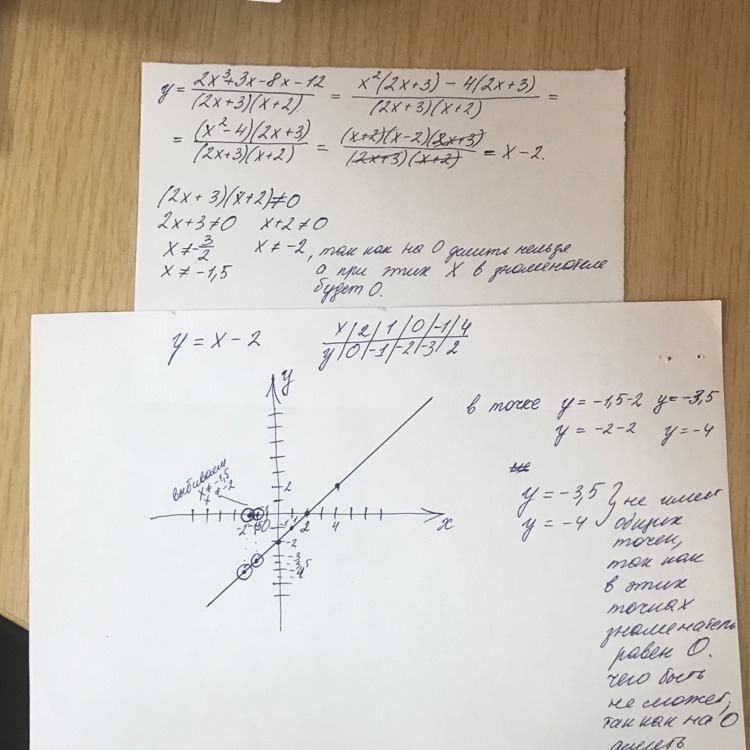 y = (2x³+3x-8x-12)/((2x+3)(x+2)) = (x²(2x+3) - 4(2x+3))/((2x+3)(x+2)) =
= ((x²-4)(2x+3))/((2x+3)(x+2)) = ((x+2)(x-2)(2x+3))/((2x+3)(x+2)) = x-2.
(2x+3)(x+2)≠0
2x+3≠0 x+2≠0
x≠-3/2 x≠-2, так как на 0 делить нельзя
x≠-1,5 а при этих X в знаменателе
будет 0.
y = x-2
x | 2 | 1 | 0 | -1 | 4
y | 0 | -1 | -2 | -3 | 2
y
в точке y=-1,5-2 y=-3,5
y=-2-2 y=-4
выбиваем
x≠-1,5
x≠-2
2
-2 -1,5 0 1 2 4 x
-1
-2
-3
-3,5
-4
y=-3,5 } не имеет
y=-4 общих
точек,
так как
в этих
точках
знаменатель
равен 0.
чего быть
не может,
так как на 0
делить